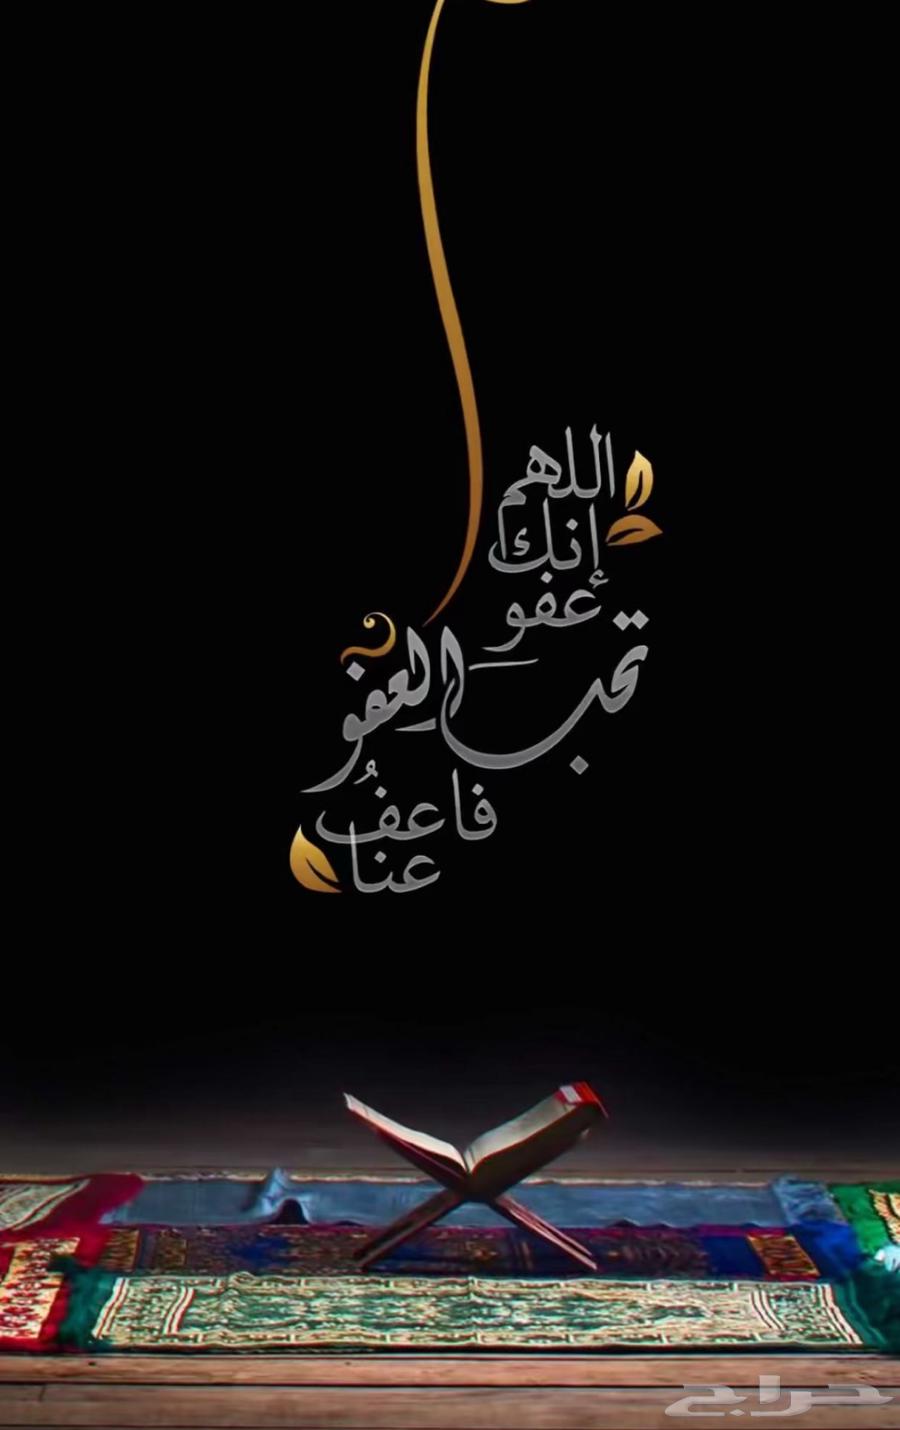 اللهم
إنك
عفو
تحب العفو
فاعفُ
عنا
حراج